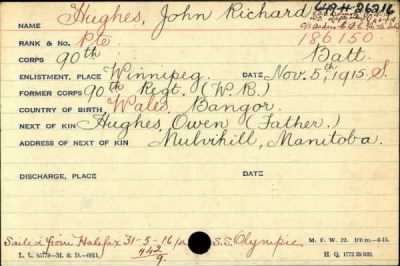 NAME Hughes, John Richard
RANK & NO. Pte 186150
CORPS 90th Batt.
ENLISTMENT, PLACE Winnipeg. DATE, Nov. 5th, 1915. S.
FORMER CORPS 90th Regt. (W.R.)
COUNTRY OF BIRTH Wales, Bangor.
NEXT OF KIN Hughes, Owen (Father.)
ADDRESS OF NEXT OF KIN Mulvihill, Manitoba.
DISCHARGE, PLACE DATE
Sailed from Halifax 31-5-16 S.S. Olympic
442
9.
M. F. W. 22.
H. Q. 1772 39 839.